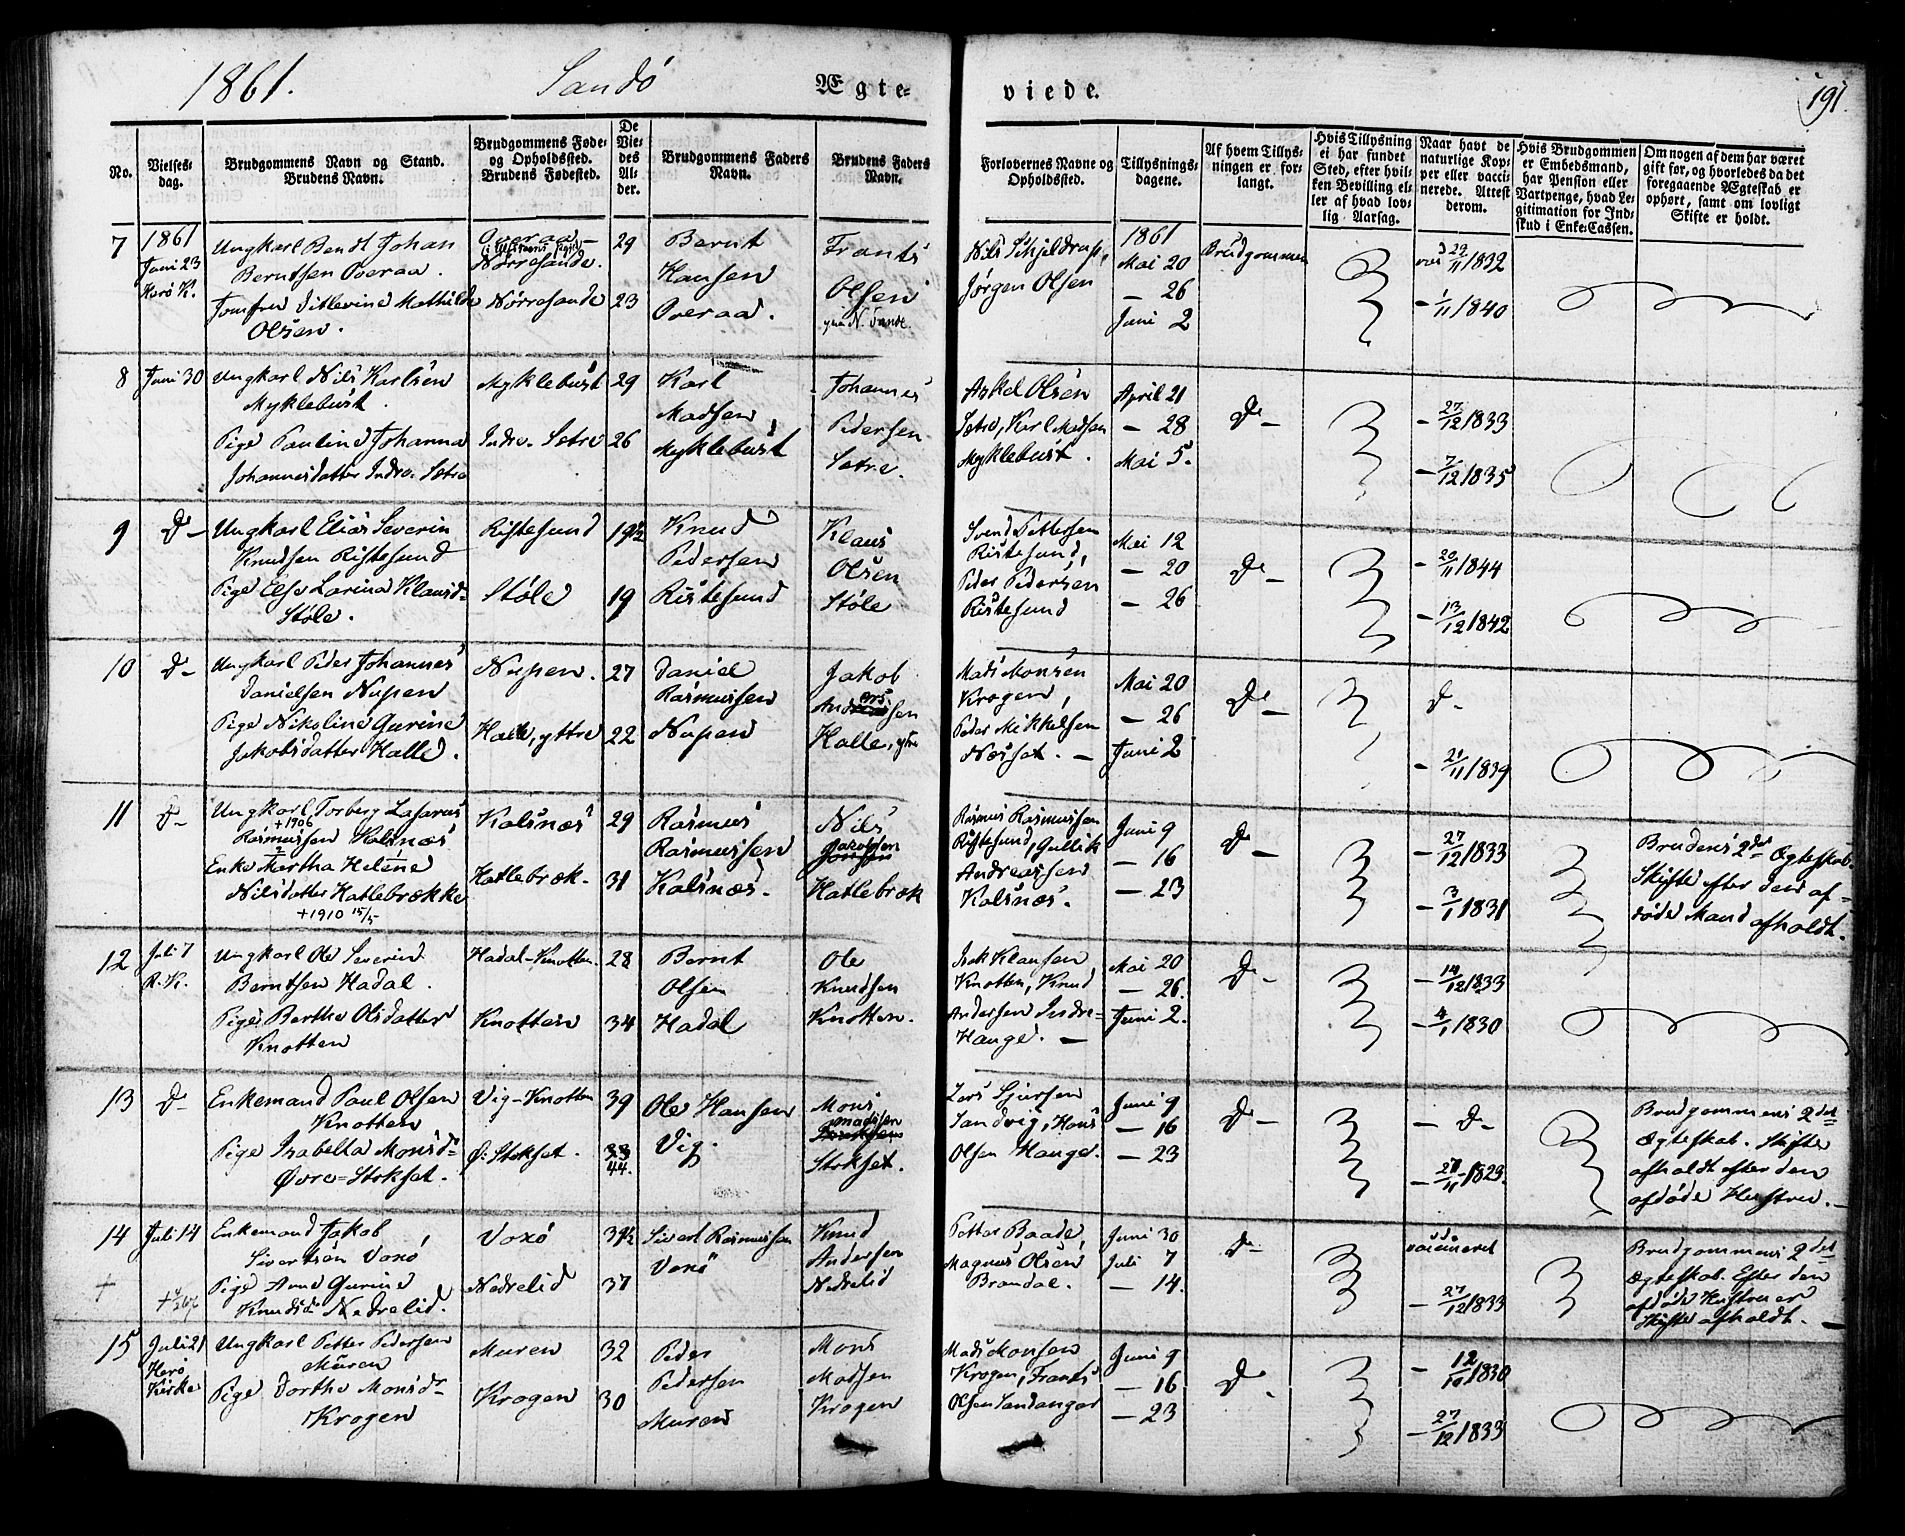 1861.
Sandö
Ægte-
viede.
191.
No.
Vielses-
dag.
Brudgommens Navn og Stand.
Brudens Navn.
Brudgommens Føde-
og Opholdssted.
Brudens Fødested.
De
Vie-
des
Al-
der.
Brudgommens Faders
Navn.
Brudens Faders
Navn.
Forlovernes Navne og
Opholdssted.
Tillysnings-
dagene.
Af hvem Tillys-
ningen er for-
langt.
Hvis Tillysning
ei har fundet
Sted, efter hvil-
ken Bevilling el-
ler af hvad lov-
lig Aarsag.
Naar havt de
naturlige Kop-
per eller vacci-
nerede. Attest
derom.
Hvis Brudgommen
er Embedsmand,
har Pension eller
Vartpenge, hvad Le-
gitimation for Ind-
skud i Enke-Cassen.
Om nogen af dem har været
gift før, og hvorledes da det
foregaaende Ægteskab er
ophørt, samt om lovligt
Skifte er holdt.
7
1861
Juni 23
Herö K.
Ungkarl Bendt Johan
Berntsen Overaa.
Jomfru Ditlevine Mathilde
Olsen.
Overaa
Nörresande.
Nörresande
29
23
Bernt
Hansen
Overaa.
Frants
Olsen
Nils Schjeldrup,
Jørgen Olsen
1861
Mai 20
— 26
Juni 2
Brudgommen
29/11 1832
— 1/11 1840
8
Juni 30
Ungkarl Nils Karlsen
Myklebust.
Pige Pauline Johanna
Johannesdatter Indre-Sætre
Myklebust
Indre-Sætre
29
26
Karl
Madsen
Myklebust
Johannes
Pedersen
Sætre.
Askel Olsen
Sætre, Karl Madsen
Myklebust.
April 21
— 28
Mai 5.
Do —
— 27/12 1833
— 7/12 1835
9
Do —
Ungkarl Elias Severin
Knudsen Ristesund
Pige Else Larina Klausd.
Støle.
Ristesund
Støle
19 1/2
19
Knud
Pedersen
Ristesund
Klaus
Olsen
Støle
Svend Pettersen
Ristesund,
Peder Pedersen
Ristesund
Mai 12
— 20
— 26
Do —
— 20/11 1844
— 13/12 1842
10
Do —
Ungkarl Peder Johannes
Danielsen Nupen
Pige Nikoline Gurine
Jakobsdatter Halle.
Nupen.
Halle, yttre
27
22
Daniel
Rasmussen
Nupen
Jakob
Andersen
Halle, ytre
Mads Monsen
Krogen,
Peder Mikkelsen
Næsset. —
Mai 20
— 26
Juni 2
Do —
Do —
— 21/11 1839
11
Do —
Ungkarl Torberg Lasarus
+1906
Rasmussen Kalsnæs
Enke Martha Helene
Nilsdatter Hatlebrække
+1910 15/5
Kalsnæs
Hatlebræk.
29
31
Rasmus
Rasmussen
Kalsnæs.
Nils
Jakobsen
Hatlebræk
Rasmus Rasmussen
Ristesund, Gullik
Andreassen
Kalsnæs.
Juni 9
— 16
— 23
Do —
— 27/12 1833
— 3/1 1831
Brudens 2det Ægteskab.
Skifte efter den af-
døde Mand afholdt.
12
Juli 7
R. K.
Ungkarl Ole Severin
Berntsen Hadal.
Pige Berthe Olsdatter
Knotten
Hadal-Knotten.
Knotten
28
34
Bernt
Olsen
Hadal
Ole
Knudsen
Knotten.
Isak Klausen
Knotten, Knud
Andersen Indre-
Hauge. —
Mai 20
— 26.
Juni 2.
Do —
— 14/12 1833
— 4/1 1830
13
Do —
Enkemand Paul Olsen
Knotten
Pige Isabella Monsd.
Øvre=Stokset.
Vig-Knotten
Ø: Stokset.
39
33
44.
Ole Hansen
Vig.
Mons
Madsen
Stokset.
Lars Sjursen
Sandvig, Hans
Olsen Hauge.
Juni 9
— 16
— 23
Do —
— Do —
— 27/11 1823.
Brudgommens 2det
Ægteskab. Skifte
afholdt efter den
afdøde Hustru. —
14
Juli 14
Enkemand Jakob
Sivertsen Voxö
Pige Anne Gurine
Knudsd. Nedrelid.
Voxö
Nedrelid
39 1/2
37
Sivert Rasmussen
Voxö
Knud
Andersen
Nedrelid
Petter Baade,
Magnus Olsen
Brandal.
Juni 30
Juli 7
— 14.
Do —
— 27/12 1833
Brudgommens 2det
Ægteskab. Efter den
afdøde Hustru er
Skifte afholdt. —
15
Juli 21
Herö
Kirke
Ungkarl Petter Pedersen
Muren
Pige Dorthe Monsdr.
Krogen
Muren
Krogen
32
30
Peder
Pedersen
Muren
Mons
Madsen
Krogen
Mads Monsen
Krogen, Frants
Olsen Sandanger
Juni 9
— 16
— 23
Do —
— 12/10 1830
— 27/12 1833